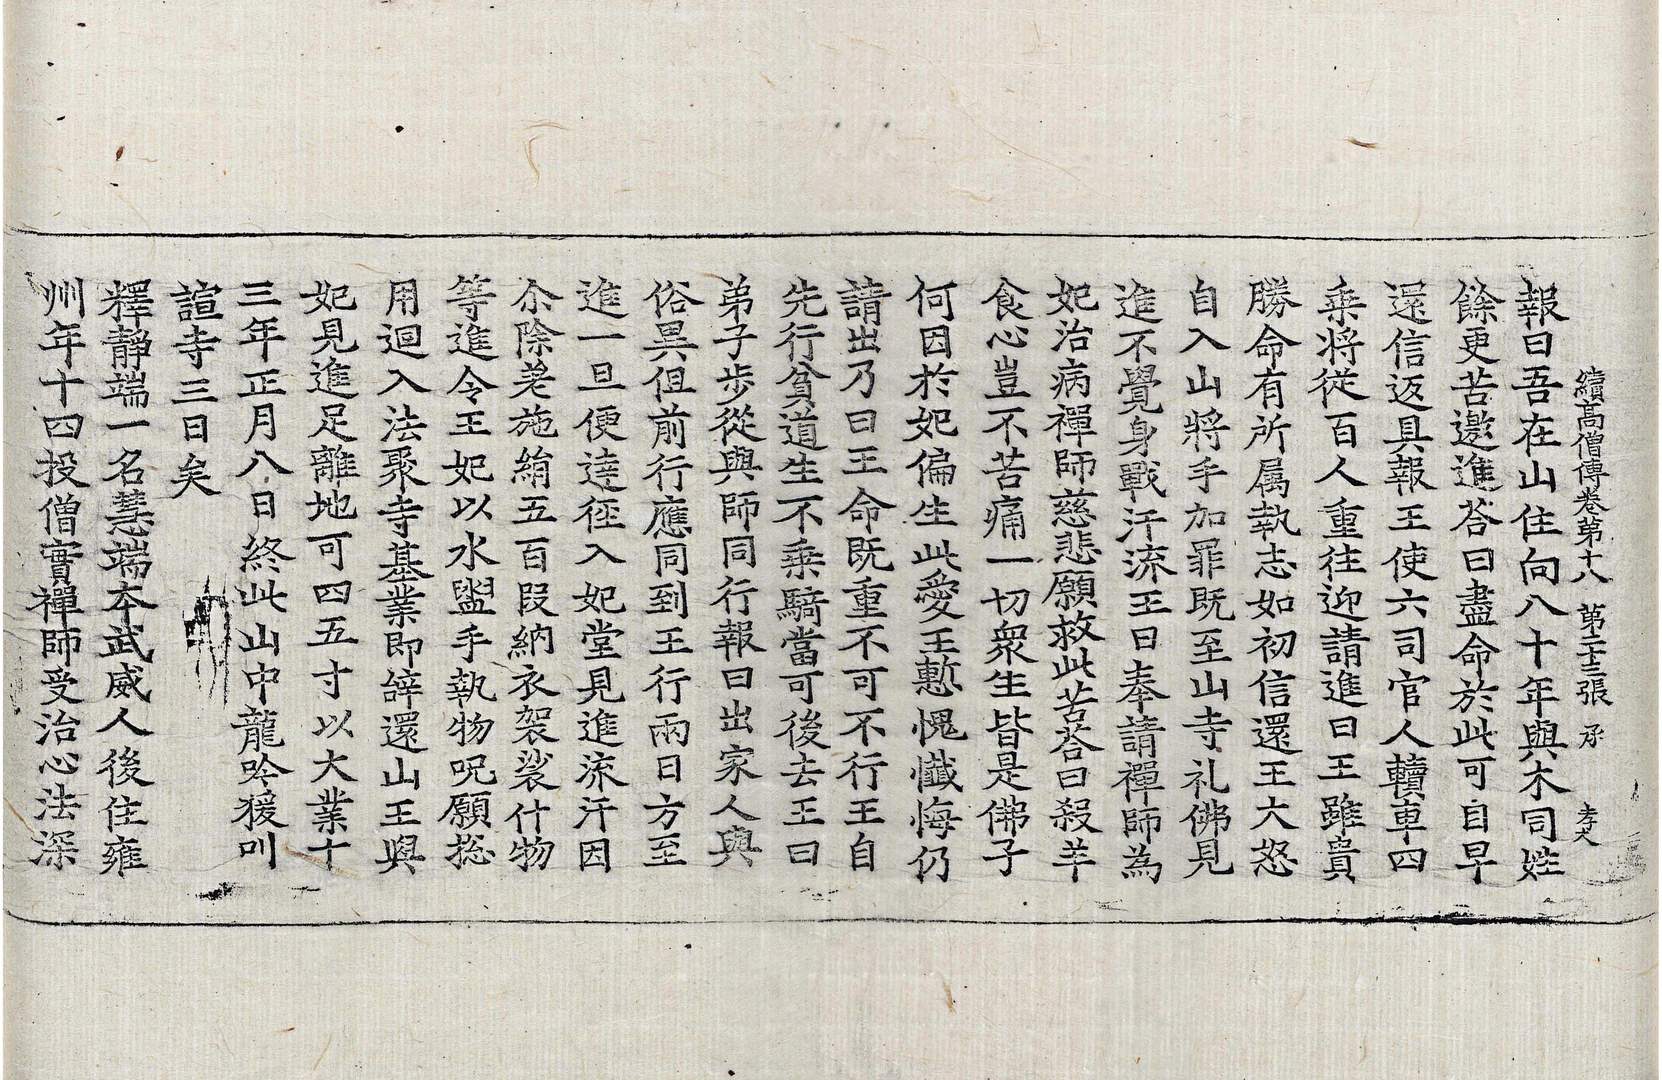 續高僧傳卷第十八　第二十三張　承　孝大
報曰吾在山住向八十年與木同姓
餘更苦邀進荅曰盡命於此可自早
還信返具報王使六司官人韥車四
乗將從百人重往迎請進曰王雖貴
勝命有所属執志如初信還王大怒
自入山將手加罪既至山寺礼佛見
進不覺身戰汗流王曰奉請禪師為
妃治病禪師慈悲願救此苦荅曰殺羊
食心豈不苦痛一切衆生皆是佛子
何因於妃偏生此愛王慙愧懺悔仍
請出乃曰王命既重不可不行王自
先行貧道生不乗騎當可後去王曰
弟子步從與師同行報曰出家人與
俗異但前行應同到王行兩日方至
進一旦便逹徑入妃堂見進流汗因
尒除差施絹五百段納衣袈裟什物
等進令王妃以水盥手執物呪願捴
用迴入法聚寺基業即辝還山王與
妃見進足離地可四五寸以大業十
三年正月八日終此山中龍吟猨叫
諠寺三日矣
釋静端一名慧端本武威人後住雍
州年十四投僧實禪師受治心法深